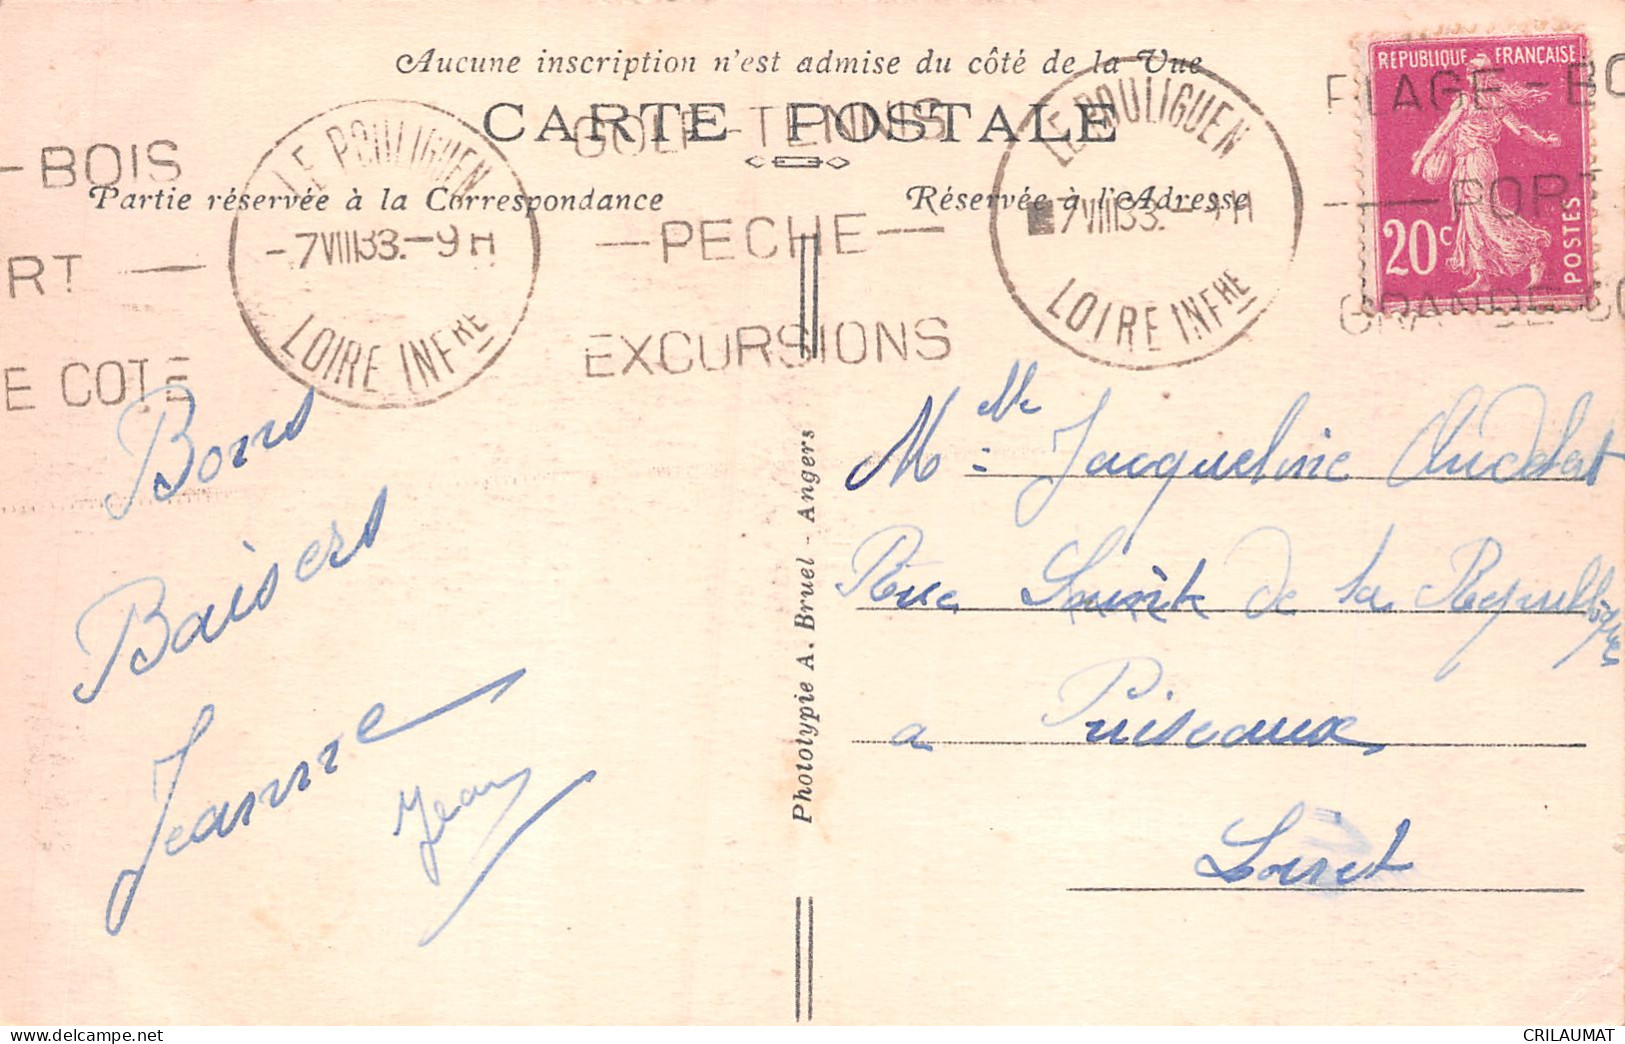 Aucune inscription n'est admise du côté de la Vue
CARTE POSTALE
Partie réservée à la Correspondance
Réservée à l'Adresse
REPUBLIQUE FRANÇAISE
20c
POSTES
-BOIS
RT —
E COTE
LE POULIGUEN
-7 VIII 33.-9H
LOIRE INFRE
GOLF-TENNIS
—PECHE—
EXCURSIONS
LE POULIGUEN
7 VIII 33. - H
LOIRE INFRE
PLAGE-BO
—PORT
GRANDE CO
Bons
Baisers
Jeanne
Jean
Phototypie A. Bruel - Angers
Melle Jacqueline
Rue de la République
a Puiseaux
Loiret
CRILAUMAT